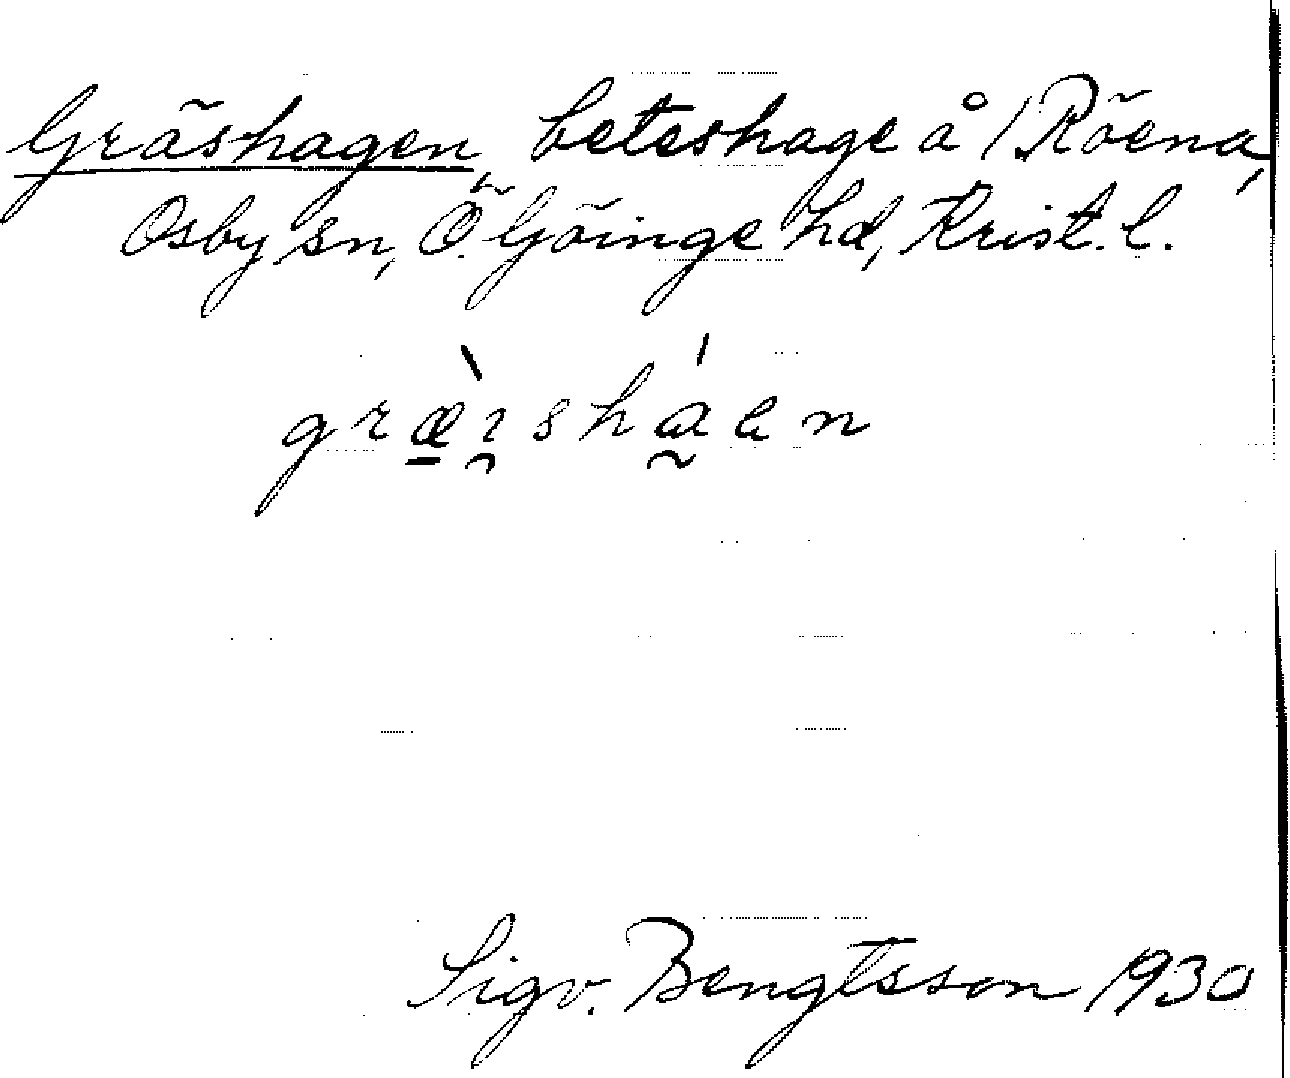 Gräshagen, beteshage å 1 Röena,
Osby sn, Ö. Göinge hd, Krist. l.
græ̀ısháen
Sigv. Bengtsson 1930